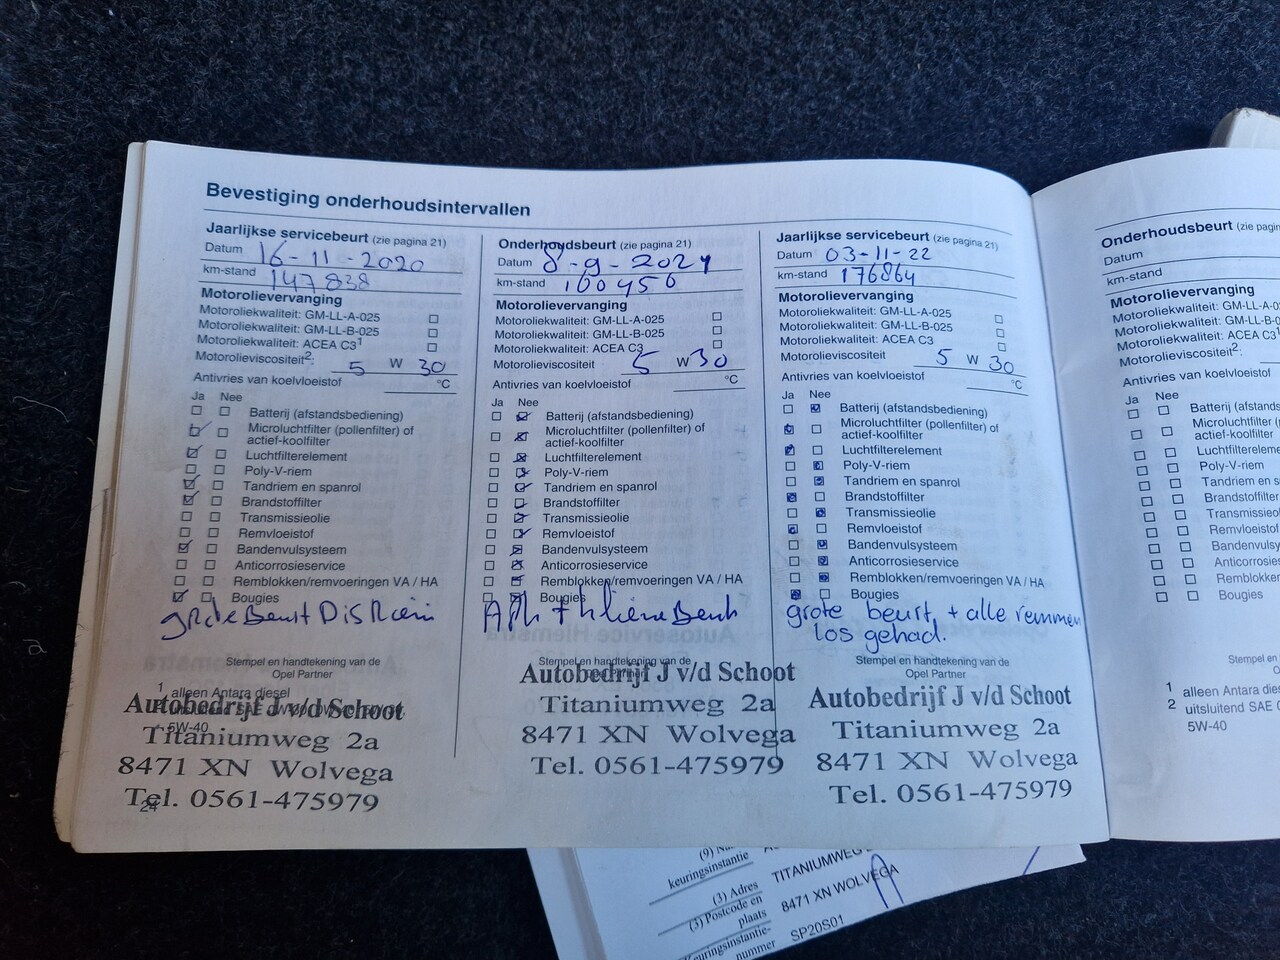 Bevestiging onderhoudsintervallen
Jaarlijkse servicebeurt (zie pagina 21)
Datum 16-11-2020
km-stand 147838
Motorolievervanging
Motoroliekwaliteit: GM-LL-A-025
Motoroliekwaliteit: GM-LL-B-025
Motoroliekwaliteit: ACEA C3¹
Motorolieviscositeit²: 5 W 30
Antivries van koelvloeistof °C
Ja Nee
Batterij (afstandsbediening)
Microluchtfilter (pollenfilter) of
actief-koolfilter
Luchtfilterelement
Poly-V-riem
Tandriem en spanrol
Brandstoffilter
Transmissieolie
Remvloeistof
Bandenvulsysteem
Anticorrosieservice
Remblokken/remvoeringen VA / HA
Bougies
grote Beurt Dis Riem
Stempel en handtekening van de
Opel Partner
¹ alleen Antara diesel
5W-40
Autobedrijf J v/d Schoot
Titaniumweg 2a
8471 XN Wolvega
Tel. 0561-475979
24
Onderhoudsbeurt (zie pagina 21)
Datum 8-9-2021
km-stand 160456
Motorolievervanging
Motoroliekwaliteit: GM-LL-A-025
Motoroliekwaliteit: GM-LL-B-025
Motoroliekwaliteit: ACEA C3
Motorolieviscositeit 5 W 30
Antivries van koelvloeistof °C
Ja Nee
Batterij (afstandsbediening)
Microluchtfilter (pollenfilter) of
actief-koolfilter
Luchtfilterelement
Poly-V-riem
Tandriem en spanrol
Brandstoffilter
Transmissieolie
Remvloeistof
Bandenvulsysteem
Anticorrosieservice
Remblokken/remvoeringen VA / HA
Bougies
APK + kleine Beurt
Stempel en handtekening van de
Opel Partner
Autobedrijf J v/d Schoot
Titaniumweg 2a
8471 XN Wolvega
Tel. 0561-475979
Jaarlijkse servicebeurt (zie pagina 21)
Datum 03-11-22
km-stand 176864
Motorolievervanging
Motoroliekwaliteit: GM-LL-A-025
Motoroliekwaliteit: GM-LL-B-025
Motoroliekwaliteit: ACEA C3
Motorolieviscositeit 5 W 30
Antivries van koelvloeistof °C
Ja Nee
Batterij (afstandsbediening)
Microluchtfilter (pollenfilter) of
actief-koolfilter
Luchtfilterelement
Poly-V-riem
Tandriem en spanrol
Brandstoffilter
Transmissieolie
Remvloeistof
Bandenvulsysteem
Anticorrosieservice
Remblokken/remvoeringen VA / HA
Bougies
grote beurt + alle remmen
los gehad.
Stempel en handtekening van de
Opel Partner
Autobedrijf J v/d Schoot
Titaniumweg 2a
8471 XN Wolvega
Tel. 0561-475979
Onderhoudsbeurt (zie pagina
Datum
km-stand
Motorolievervanging
Motoroliekwaliteit: GM-LL-A-0
Motoroliekwaliteit: GM-LL-B-0
Motoroliekwaliteit: ACEA C3¹
Motorolieviscositeit²:
Antivries van koelvloeistof
Ja Nee
Batterij (afstands
Microluchtfilter (
actief-koolfilter
Luchtfilterelem
Poly-V-riem
Tandriem en s
Brandstoffilter
Transmissieo
Remvloeistof
Bandenvulsys
Anticorrosies
Remblokken/
Bougies
Stempel en
O
¹ alleen Antara dies
² uitsluitend SAE 0
5W-40
(9) Na
keuringsinstantie
(3) Adres TITANIUMWEG
(3) Postcode en
plaats 8471 XN WOLVEGA
Keuringsinstantie-
nummer SP20S01